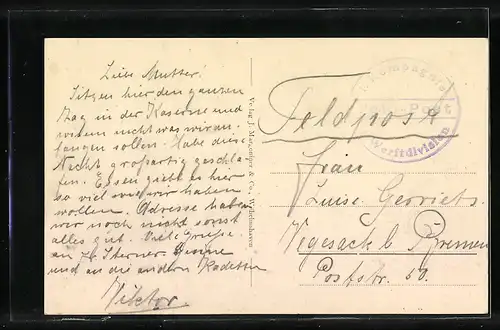 Liebe Mutter!
Sitzen hier den ganzen
Tag in der Kaserne und
wissen nicht was wir an-
fangen sollen. Habe diese
Nacht großartig geschla-
fen. Essen giebt es hier
so viel wie wir haben
wollen. Adresse haben
wir noch nicht sonst
alles gut. Viele Grüße
an
und an die andern Kadetten
Viktor.
Verlag J. & Co., Wilhelmshaven
Kompagnie
Werftdivision
Feldpost
Frau
Luise Gerriets
Vegesack b. Bremen
Poststr. 50.